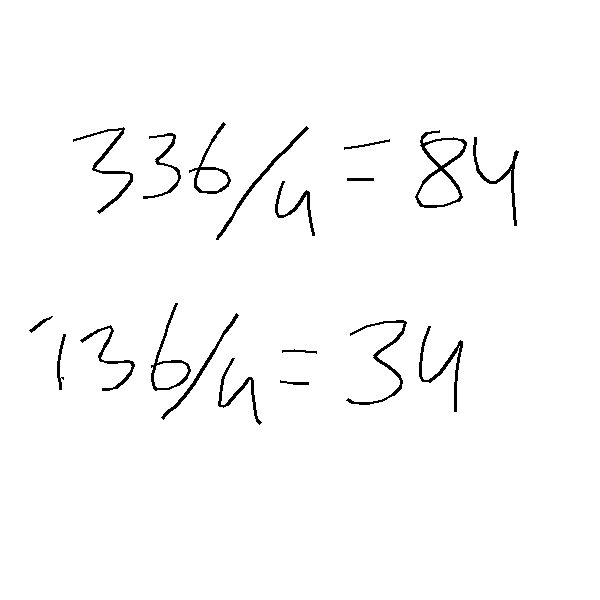 336/4 = 84
136/4 = 34